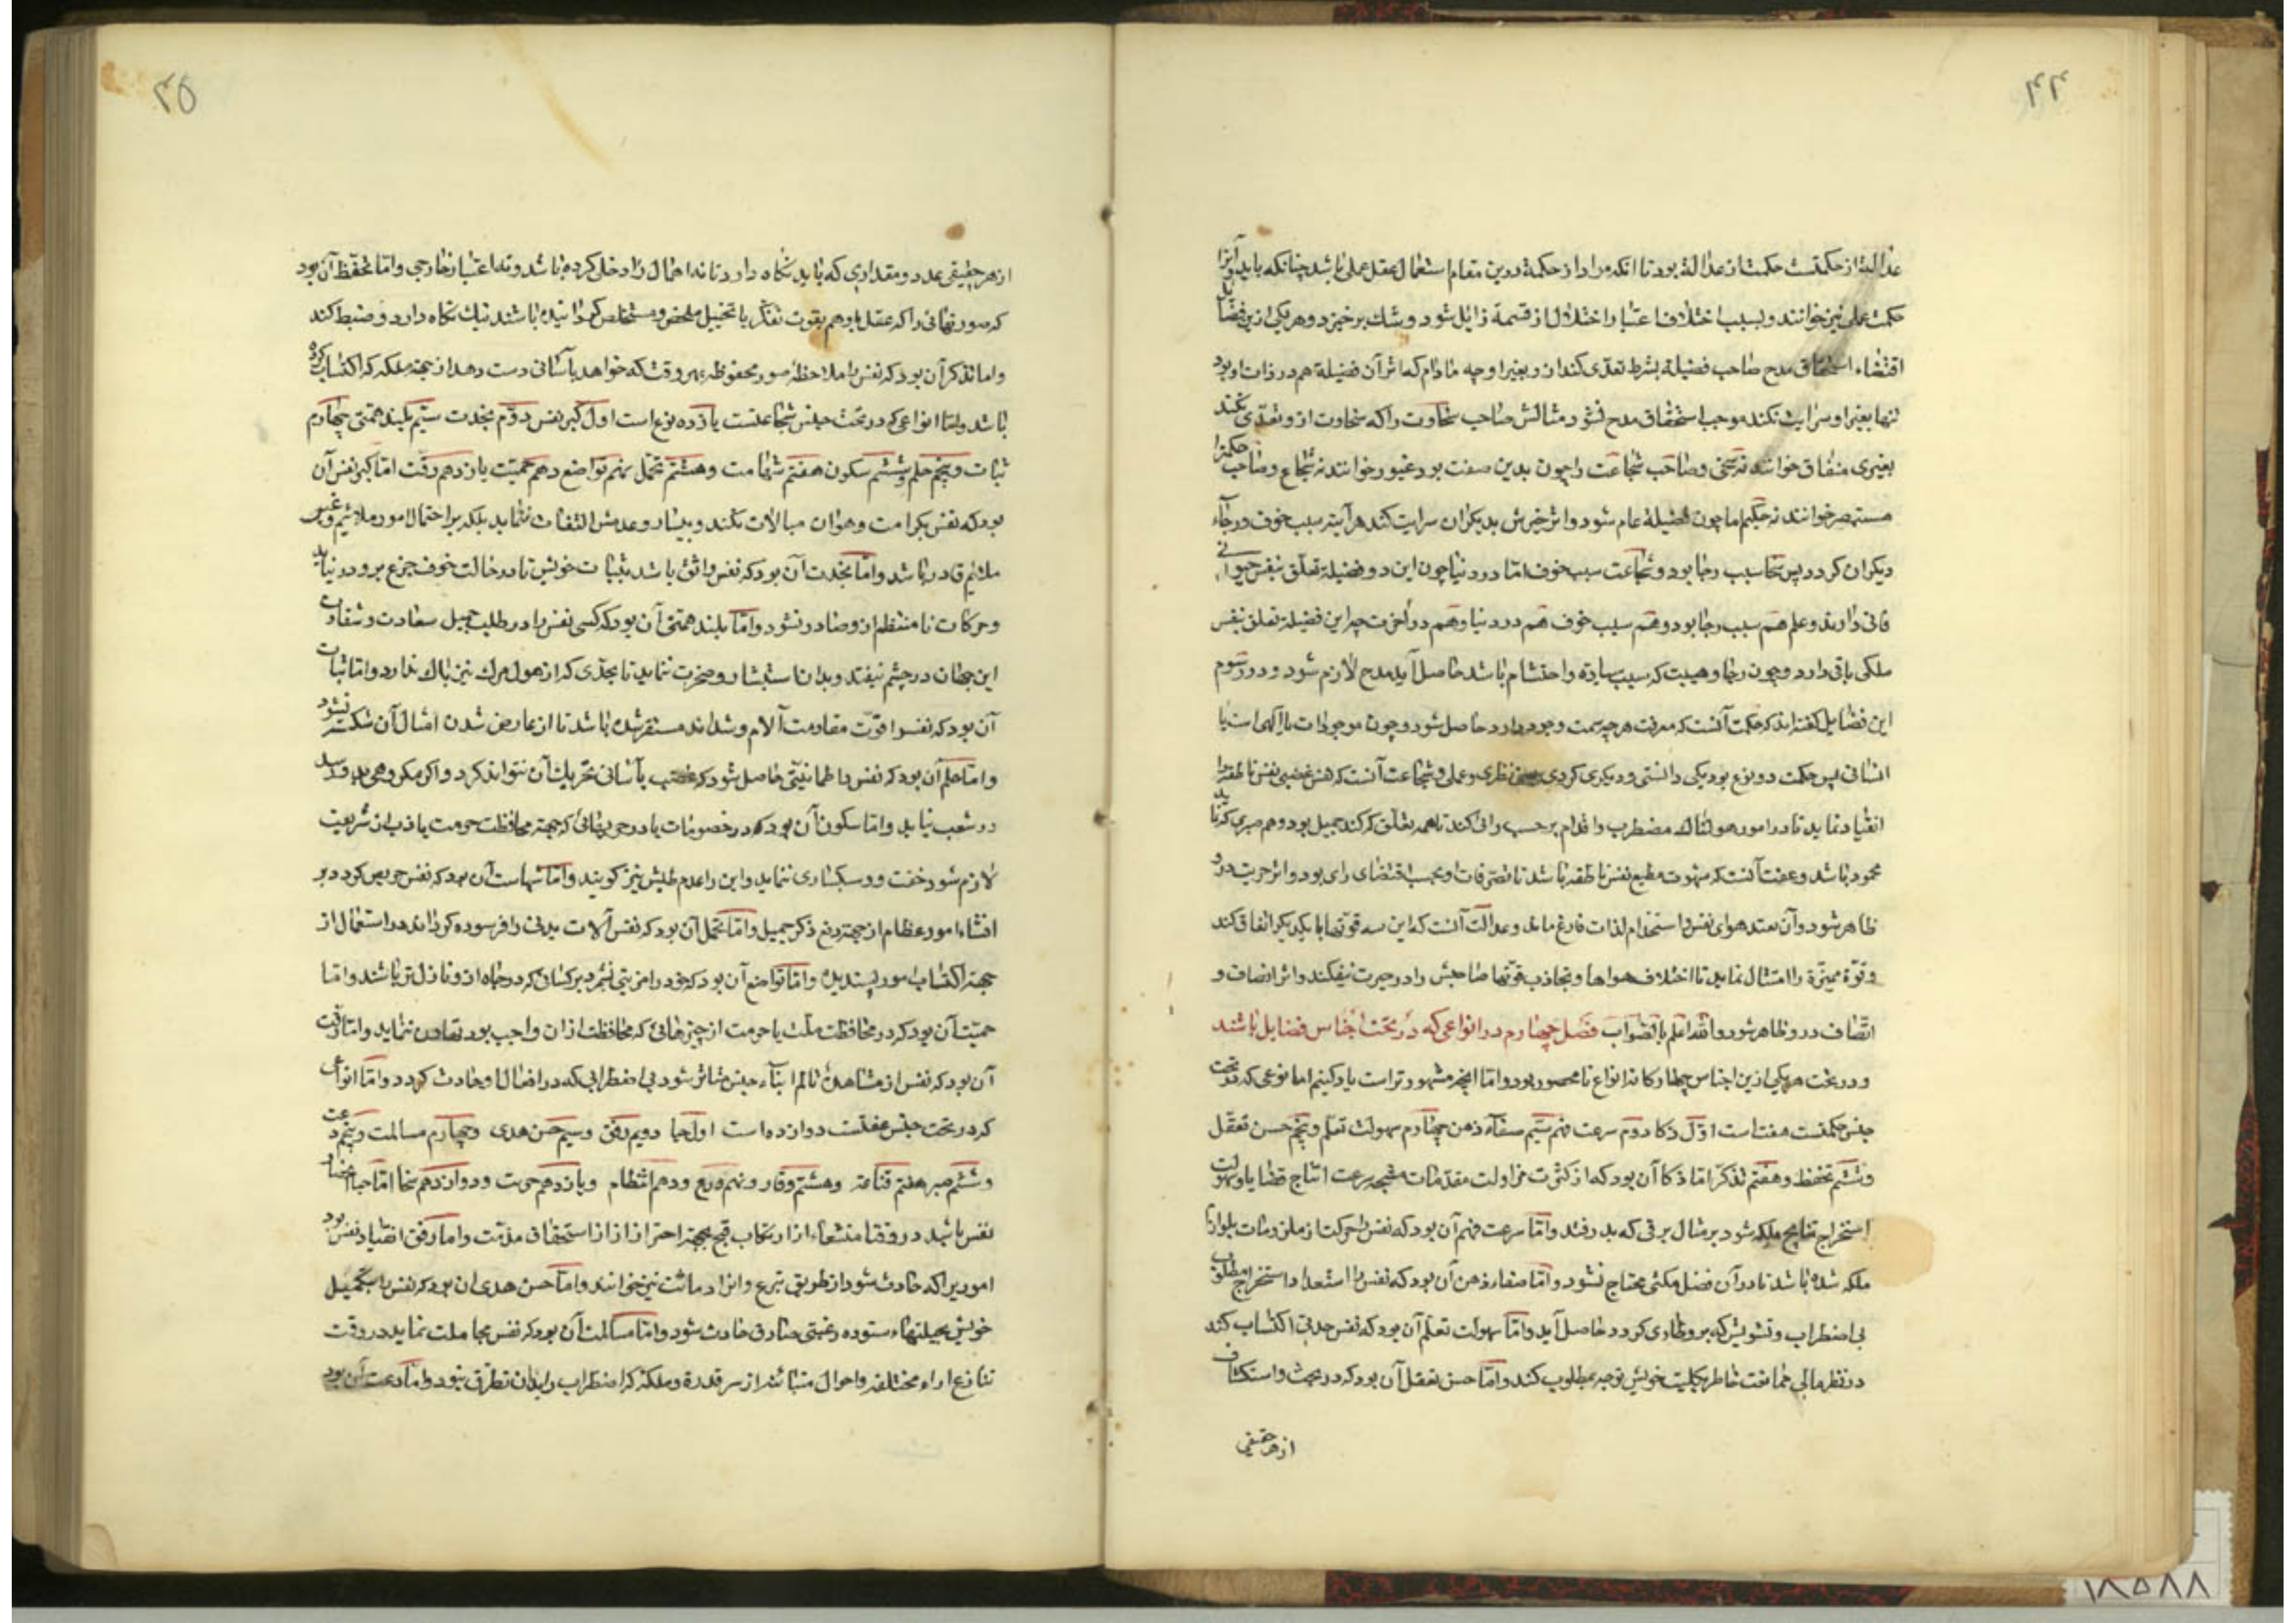 ۴۴
عدالت از حکمتست حکمت از عدالة بود تا انکه مراد از حکمة درین مقام استعمال عقل عملی باشد چنانکه باید و آنرا
حکمت عملی نیز خوانند و بسبب اختلاف اعتبار اختلال از قسمة زایل شود و شک برخیزد و هریکی ازین فضایل
اقتضاء استحقاق مدح صاحب فضیلة بشرط تعدی کند ازو بغیر او چه مادام که اثر آن فضیلة هم در ذات او بود
تنها بغیر او سرایت نکند موجب استحقاق مدح نشود مثالش صاحب سخاوت را که سخاوت ازو تعدی نکند
بغیری منفاق خوانند نه سخی و صاحب شجاعت را چون بدین صفت بود غیور خوانند نه شجاع و صاحب حکمترا
مستبصر خوانند نه حکیم اما چون فضیلة عام شود و اثر خیرش بدیکران سرایت کند هرآینه سبب خوف و رجاء
دیکران کردد پس سخا سبب رجا بود و شجاعت سبب خوف اما در دنیا چون این دو فضیلة تعلق بنفس حیوانی
فانی دارند و علم هم سبب رجا بود و هم سبب خوف هم در دنیا و هم در آخرت چه این فضیلة تعلق بنفس
ملکی باقی دارد و چون رجا و هیبت که سبب سیادة و احتشام باشد حاصل آید مدح لازم شود و در رسوم
این فضایل کفته اند که حکمت آنست که معرفت هرچه سمت وجود دارد حاصل شود و چون موجودات یا الهی است یا
انسانی پس حکمت دو نوع بود یکی دانستی و دیکری کردی یعنی نظری و عملی و شجاعت آنست که نفس غضبی نفس ناطقه را
انقیاد نماید تا در امور هولناک مضطرب و اقدام بر حسب رای کند تا هم فعلی که کند جمیل بود و هم صبری که نماید
محمود باشد و عفت آنست که شهوت مطیع نفس ناطقه باشد تا تصرفات او بحسب اقتضای رای بود و اثر حریت درو
ظاهر شود و از تعبد هوای نفس و استخدام لذات فارغ ماند و عدالت آنست که این سه قوتها با یکدیکر اتفاق کند
و قوّة ممیزة را امتثال نماید تا اختلاف هواها و تجاذب قوتها صاحبش را در حیرت نیفکند و اثر انصاف و
اتّصاف درو ظاهر شود والله اعلم بالصواب فصل چهارم در انواعی که در تحت اجناس فضایل باشند
و در تحت هریکی ازین اجناس چهارکانه انواع نامحصور بود و اما انچه مشهورتر است یاد کنیم اما نوعی که در تحت
جنس حکمتست هفت است اوّل ذکا دوم سرعت فهم سیم صفاء ذهن چهارم سهولت تعلم و پنجم حسن تعقل
و ششم تحفظ و هفتم تذکر اما ذکا آن بود که از کثرت مزاولت مقدمات منتجه سرعت انتاج قضایا و سهولت
استخراج نتایج ملکه شود بر مثال برقی که بدرفشد و امّا سرعت فهم آن بود که نفس را حرکت از ملزومات بلوازم
ملکه شده باشد تا در آن فضل مکثی محتاج نشود و امّا صفاء ذهن آن بود که نفس را استعداد استخراج مطلوب
بی اضطراب و تشویش که برو طاری کردد حاصل آید و امّا سهولت تعلم آن بود که نفس حدتی اکتساب کند
در نظر تا بی ممانعت خاطر بکلیت خویش توجه بمطلوب کند و امّا حسن تعقل آن بود که در بحث و استکشاف
از هر حقیقی
۴۵
از هر حقیقی عدد و مقداری که باید نکاه دارد تا نه اهمال داخل کرده باشد و نه اعتبار خارجی و امّا تحفّظ آن بود
که صورتهائی را که عقل یا وهم بقوت تفکر یا تخیل ملخص و مستخلص کردانیده باشند نیک نکاه دارد و ضبط کند
و اما تذکر آن بود که نفس را ملاحظهٔ صور محفوظه بهر وقت که خواهد بآسانی دست دهد از جهة ملکه که اکتساب کرده
باشد و امّا انواعی که در تحت جنس شجاعتست یازده نوع است اول کبر نفس دوّم نجدت سیّم بلند همتی چهارم
ثبات و پنجم حلم و ششم سکون هفتم شهامت و هشتم تحمل نهم تواضع دهم حمیت یازدهم رقت امّا کبر نفس آن
بود که نفس بکرامت و هوان مبالات نکند و بیسار و عدمش التفات ننماید بلکه بر احتمال امور ملایم و غیر
ملایم قادر باشد و امّا نجدت آن بود که نفس واثق باشد بثبات خویش تا در حالت خوف جزع برو در نیاید
و حرکات نامنتظم ازو صادر نشود و امّا بلند همتی آن بود که کسی نفس را در طلب جمیل سعادت و شقاوت
این جهان در چشم نیفتد و بدان استبشار و ضجرت ننماید تا بحدّی که از هول مرک نیز باک ندارد و اما ثبات
آن بود که نفس را قوّت مقاومت آلام و شداید مستقر شده باشد تا از عارض شدن امثال آن شکسته نشود
و اما حلم آن بود که نفس را طمانینتی حاصل شود که غضب بآسانی تحریک آن نتواند کرد و اکر مکروهی بدو رسد
در شغب نیاید و اما سکون آن بود که در خصومات یا در حربهائی که جهة محافظت حرمت یا ذب از شریعت
لازم شود خفت و سبکساری ننماید و این را عدم طیش نیز کویند و امّا شهامت آن بود که نفس حریص کردد بر
اقتناء امور عظام از جهة توقع ذکر جمیل و امّا تحمل آن بود که نفس آلات بدنی را فرسوده کرداند در استعمال از
جهة اکتساب امور پسندیده و امّا تواضع آن بود که خود را مزیتی نشمرد بر کسانی که در جاه ازو نازل تر باشند و امّا
حمیّت آن بود که در محافظت ملّت یا حرمت از چیزهائی که محافظت از ان واجب بود تهاون ننماید و امّا رقت
آن بود که نفس از مشاهدهٔ تالم ابناء جنس متاثر شود بی اضطرابی که در افعال او حادث کردد و امّا انواعی
که در تحت جنس عفتست دوازده است اول حیا دویم رفق و سیم حسن هدی و چهارم مسالمت و پنجم دعت
و ششم صبر هفتم قناعة و هشتم وقار و نهم ورع و دهم انتظام و یازدهم حریت و دوازدهم سخا امّا حیا انحصار
نفس باشد در وقت استشعار از ارتکاب قبیح بجهة احتراز از استحقاق مذمّت و اما رفق انقیاد نفس بود
اموریرا که حادث شود از طریق تبرع و انرا دماثت نیز خوانند و امّا حسن هدی ان بود که نفس را بتکمیل
خویش بحیلتهاء ستوده رغبتی صادق حادث شود و امّا مسالمت آن بود که نفس مجاملت نماید در وقت
تنازع اراء مختلفه و احوال متباینه از سر قدرة و ملکه که اضطراب را بدان تطرق نبود و امّا دعت آن بود
۱۸۵۸۸